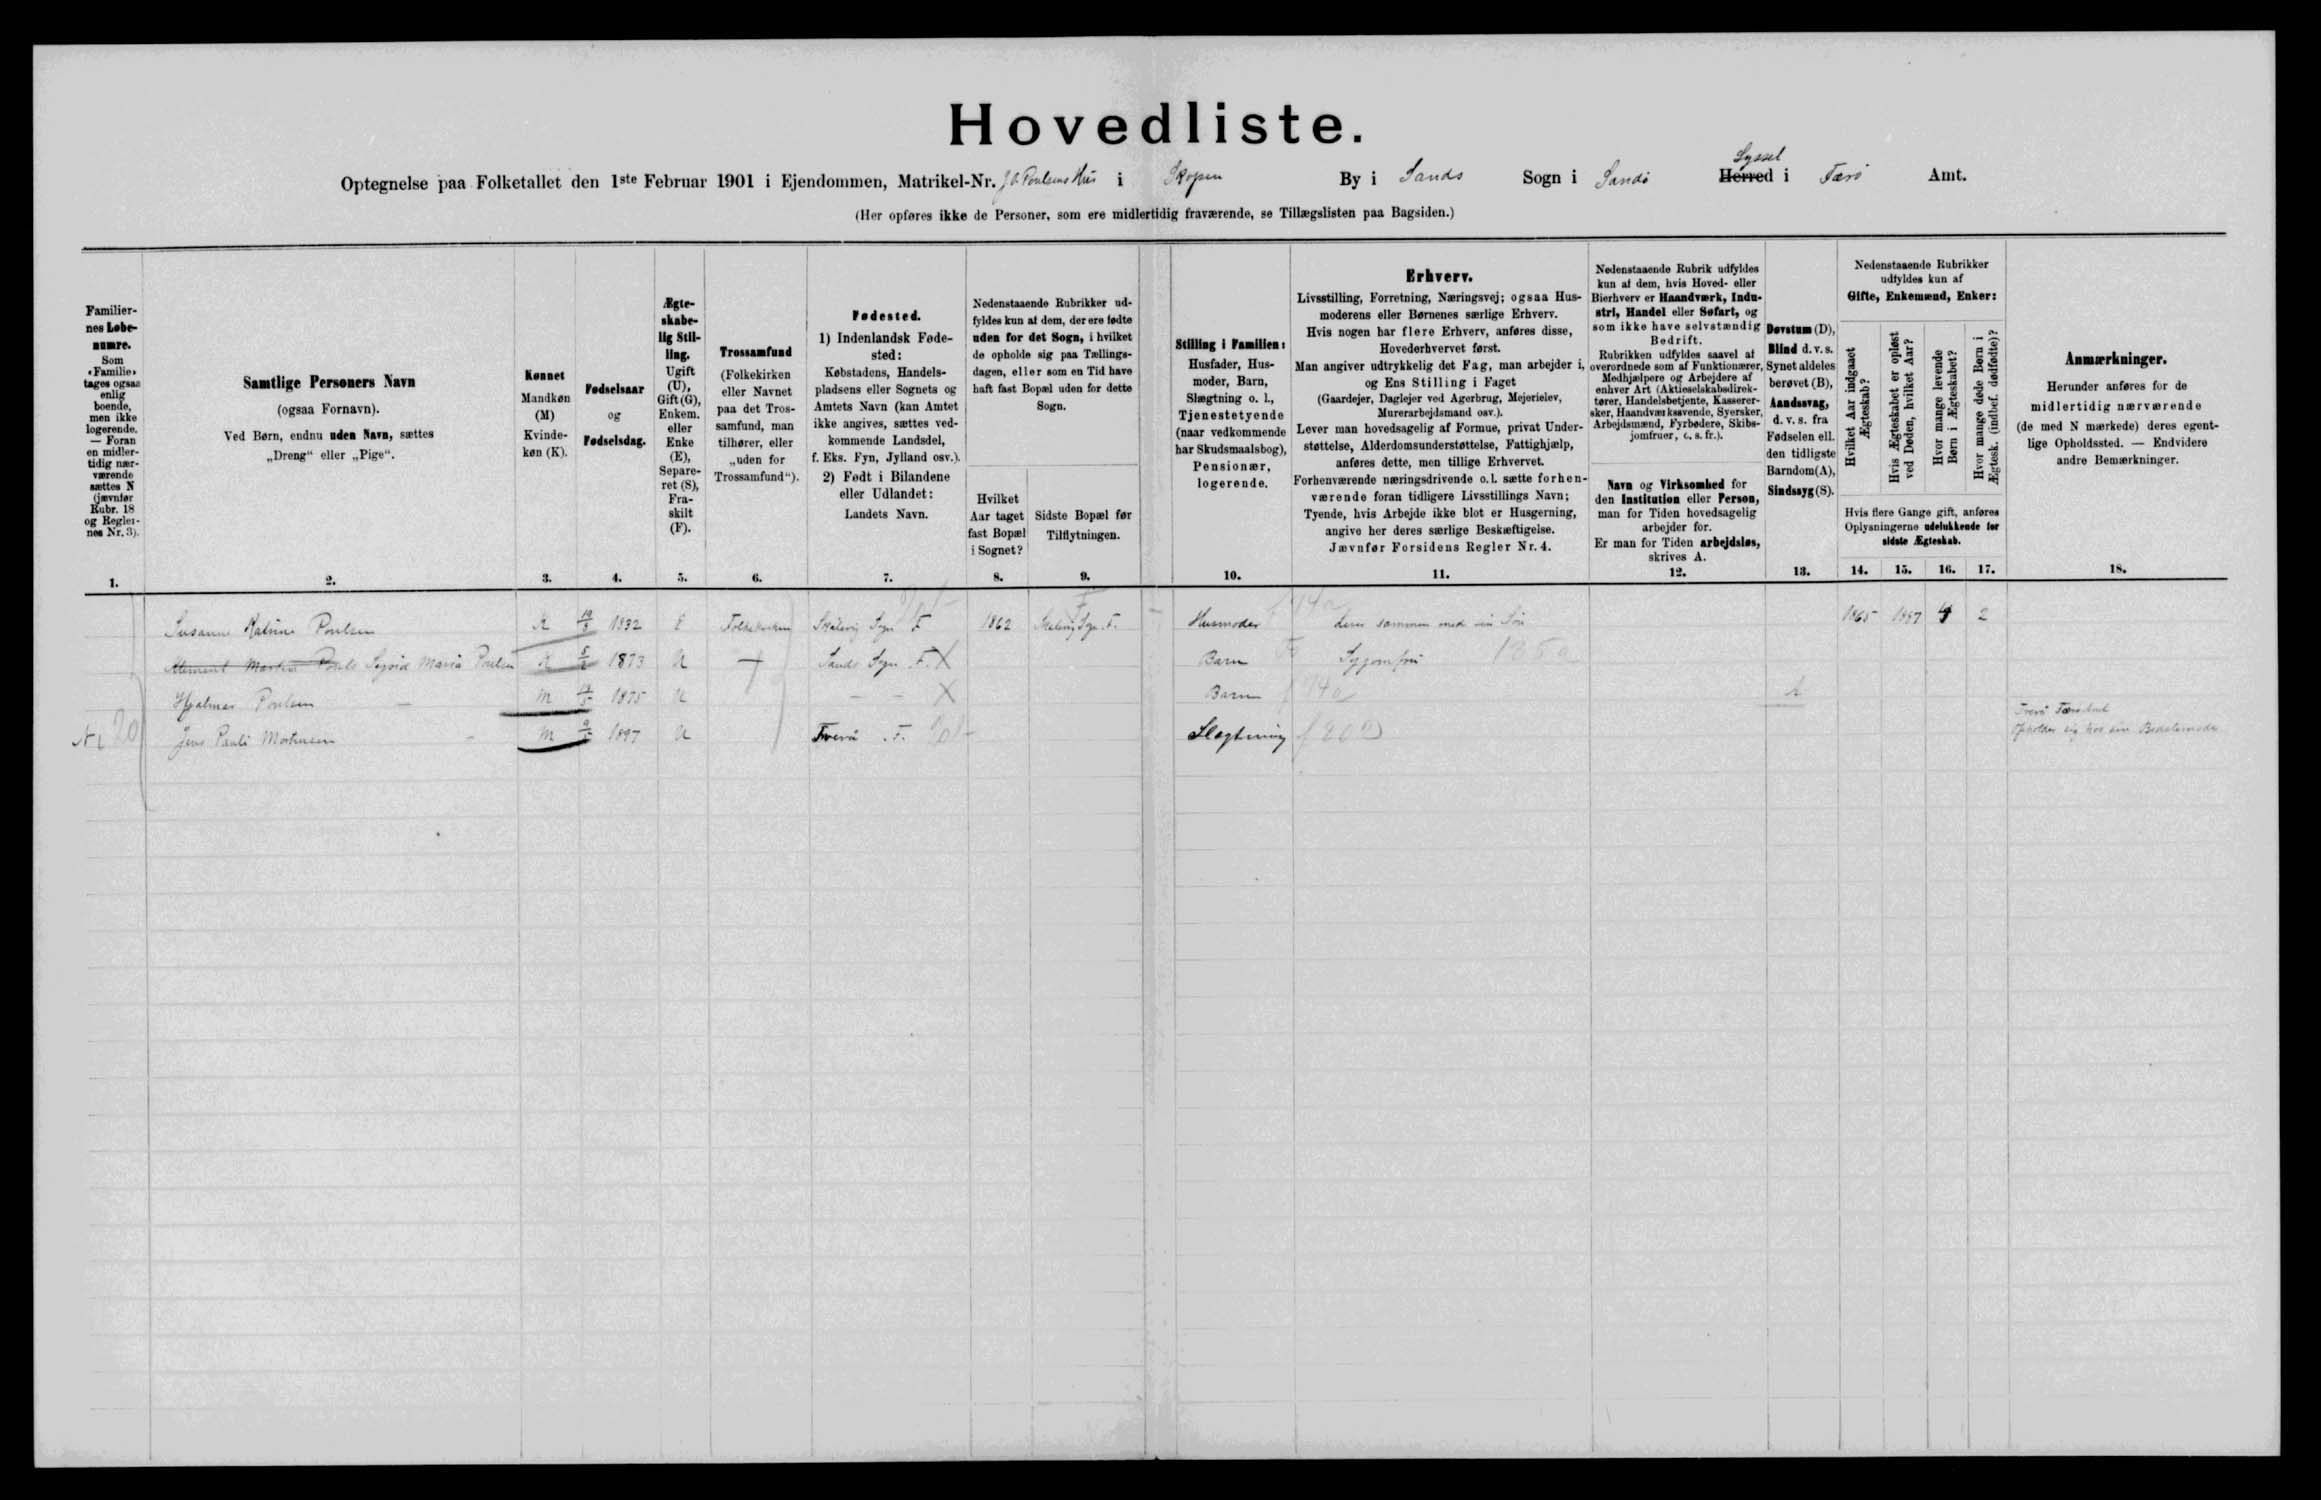 Hovedliste.
Optegnelse paa Folketallet den 1ste Februar 1901 i Ejendommen, Matrikel-Nr. Poulsens Hus i Skopen By i Sands Sogn i Sandö Herred Syssel i Færö Amt.
(Her opføres ikke de Personer, som ere midlertidig fraværende, se Tillægslisten paa Bagsiden.)
Familiernes Løbenumre.
Som «Familie» tages ogsaa enlig boende, men ikke logerende. — Foran en midlertidig nærværende sættes N (jævnfør Rubr. 18 og Reglernes Nr. 3).
1.
Samtlige Personers Navn
(ogsaa Fornavn).
Ved Børn, endnu uden Navn, sættes
„Dreng“ eller „Pige“.
2.
Kønnet
Mandkøn
(M)
Kvinde-
køn (K).
3.
Fødselsaar
og
Fødselsdag.
4.
Ægte-
skabe-
lig Stil-
ling.
Ugift
(U),
Gift (G),
Enkem.
eller
Enke
(E),
Separe-
ret (S),
Fra-
skilt
(F).
5.
Trossamfund
(Folkekirken
eller Navnet
paa det Tros-
samfund, man
tilhører, eller
„uden for
Trossamfund“).
6.
Fødested.
1) Indenlandsk Føde-
sted:
Købstadens, Handels-
pladsens eller Sognets og
Amtets Navn (kan Amtet
ikke angives, sættes ved-
kommende Landsdel,
f. Eks. Fyn, Jylland osv.).
2) Født i Bilandene
eller Udlandet:
Landets Navn.
7.
Nedenstaaende Rubrikker ud-
fyldes kun af dem, der ere fødte
uden for det Sogn, i hvilket
de opholde sig paa Tællings-
dagen, eller som en Tid have
haft fast Bopæl uden for dette
Sogn.
Hvilket
Aar taget
fast Bopæl
i Sognet?
8.
Sidste Bopæl før
Tilflytningen.
9.
Stilling i Familien:
Husfader, Hus-
moder, Barn,
Slægtning o. l.,
Tjenestetyende
(naar vedkommende
har Skudsmaalsbog),
Pensionær,
logerende.
10.
Erhverv.
Livsstilling, Forretning, Næringsvej; ogsaa Hus-
moderens eller Børnenes særlige Erhverv.
Hvis nogen har flere Erhverv, anføres disse,
Hovederhvervet først.
Man angiver udtrykkelig det Fag, man arbejder i,
og Ens Stilling i Faget
(Gaardejer, Daglejer ved Agerbrug, Mejerielev,
Murerarbejdsmand osv.).
Lever man hovedsagelig af Formue, privat Under-
støttelse, Alderdomsunderstøttelse, Fattighjælp,
anføres dette, men tillige Erhvervet.
Forhenværende næringsdrivende o. l. sætte forhen-
værende foran tidligere Livsstillings Navn;
Tyende, hvis Arbejde ikke blot er Husgerning,
angive her deres særlige Beskæftigelse.
Jævnfør Forsidens Regler Nr. 4.
11.
Nedenstaaende Rubrik udfyldes
kun af dem, hvis Hoved- eller
Bierhverv er Haandværk, Indu-
stri, Handel eller Søfart, og
som ikke have selvstændig
Bedrift.
Rubrikken udfyldes saavel af
overordnede som af Funktionærer,
Medhjælpere og Arbejdere af
enhver Art (Aktieselskabsdirek-
tører, Handelsbetjente, Kasserer-
sker, Haandværkssvende, Syersker,
Arbejdsmænd, Fyrbødere, Skibs-
jomfruer, o. s. fr.).
Navn og Virksomhed for
den Institution eller Person,
man for Tiden hovedsagelig
arbejder for.
Er man for Tiden arbejdsløs,
skrives A.
12.
Døvstum (D),
Blind d. v. s.
Synet aldeles
berøvet (B),
Aandssvag,
d. v. s. fra
Fødselen ell.
den tidligste
Barndom (A),
Sindssyg (S).
13.
Nedenstaaende Rubrikker
udfyldes kun af
Gifte, Enkemænd, Enker:
Hvilket Aar indgaaet Ægteskab?
Hvis Ægteskabet er opløst ved Døden, hvilket Aar?
Hvor mange levende Børn i Ægteskabet?
Hvor mange døde Børn i Ægtesk. (indbef. dødfødte)?
Hvis flere Gange gift, anføres
Oplysningerne udelukkende for
sidste Ægteskab.
14. 15. 16. 17.
Anmærkninger.
Herunder anføres for de
midlertidig nærværende
(de med N mærkede) deres egent-
lige Opholdssted. — Endvidere
andre Bemærkninger.
18.
Susanne Katrine Poulsen K 1832 E Folkekirken Skålevig Sogn F 1862 Skålevig Sogn F. Husmoder Lever sammen med sin Sön 1865 1897 2
Maria Poulsen K 1873 U Sands Sogn F. X Barn Syjomfru 1350
Hjalmar Poulsen M 1875 U — — X Barn A
N Jens Pauli Mortensen M 1897 U Tverå F. Slægtning Tverå
Opholder sig hos sin Bedstemoder